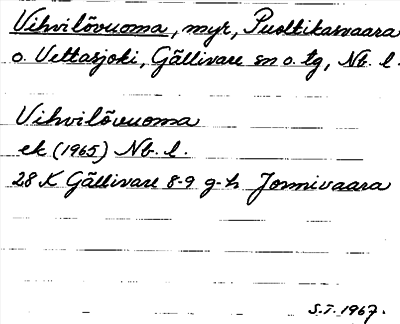 Vihvilövuoma, myr, Puoltikasvaara
o. Vettasjoki, Gällivare sn o. tg, Nb. l.
Vihvilövuoma
ek (1965) Nb. l.
28 K Gällivare 8-9 g-h Jormivaara
S.T. 1967.